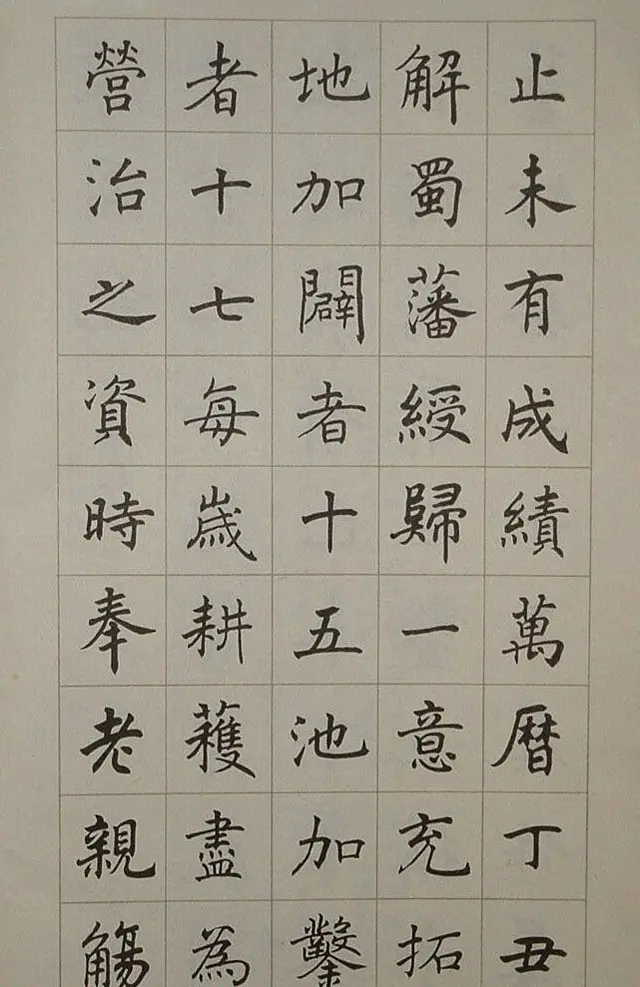 止未有成績萬曆丁丑
解蜀藩綬歸一意充拓
地加闢者十五池加鑿
者十七每歲耕穫盡為
營治之資時奉老親觴